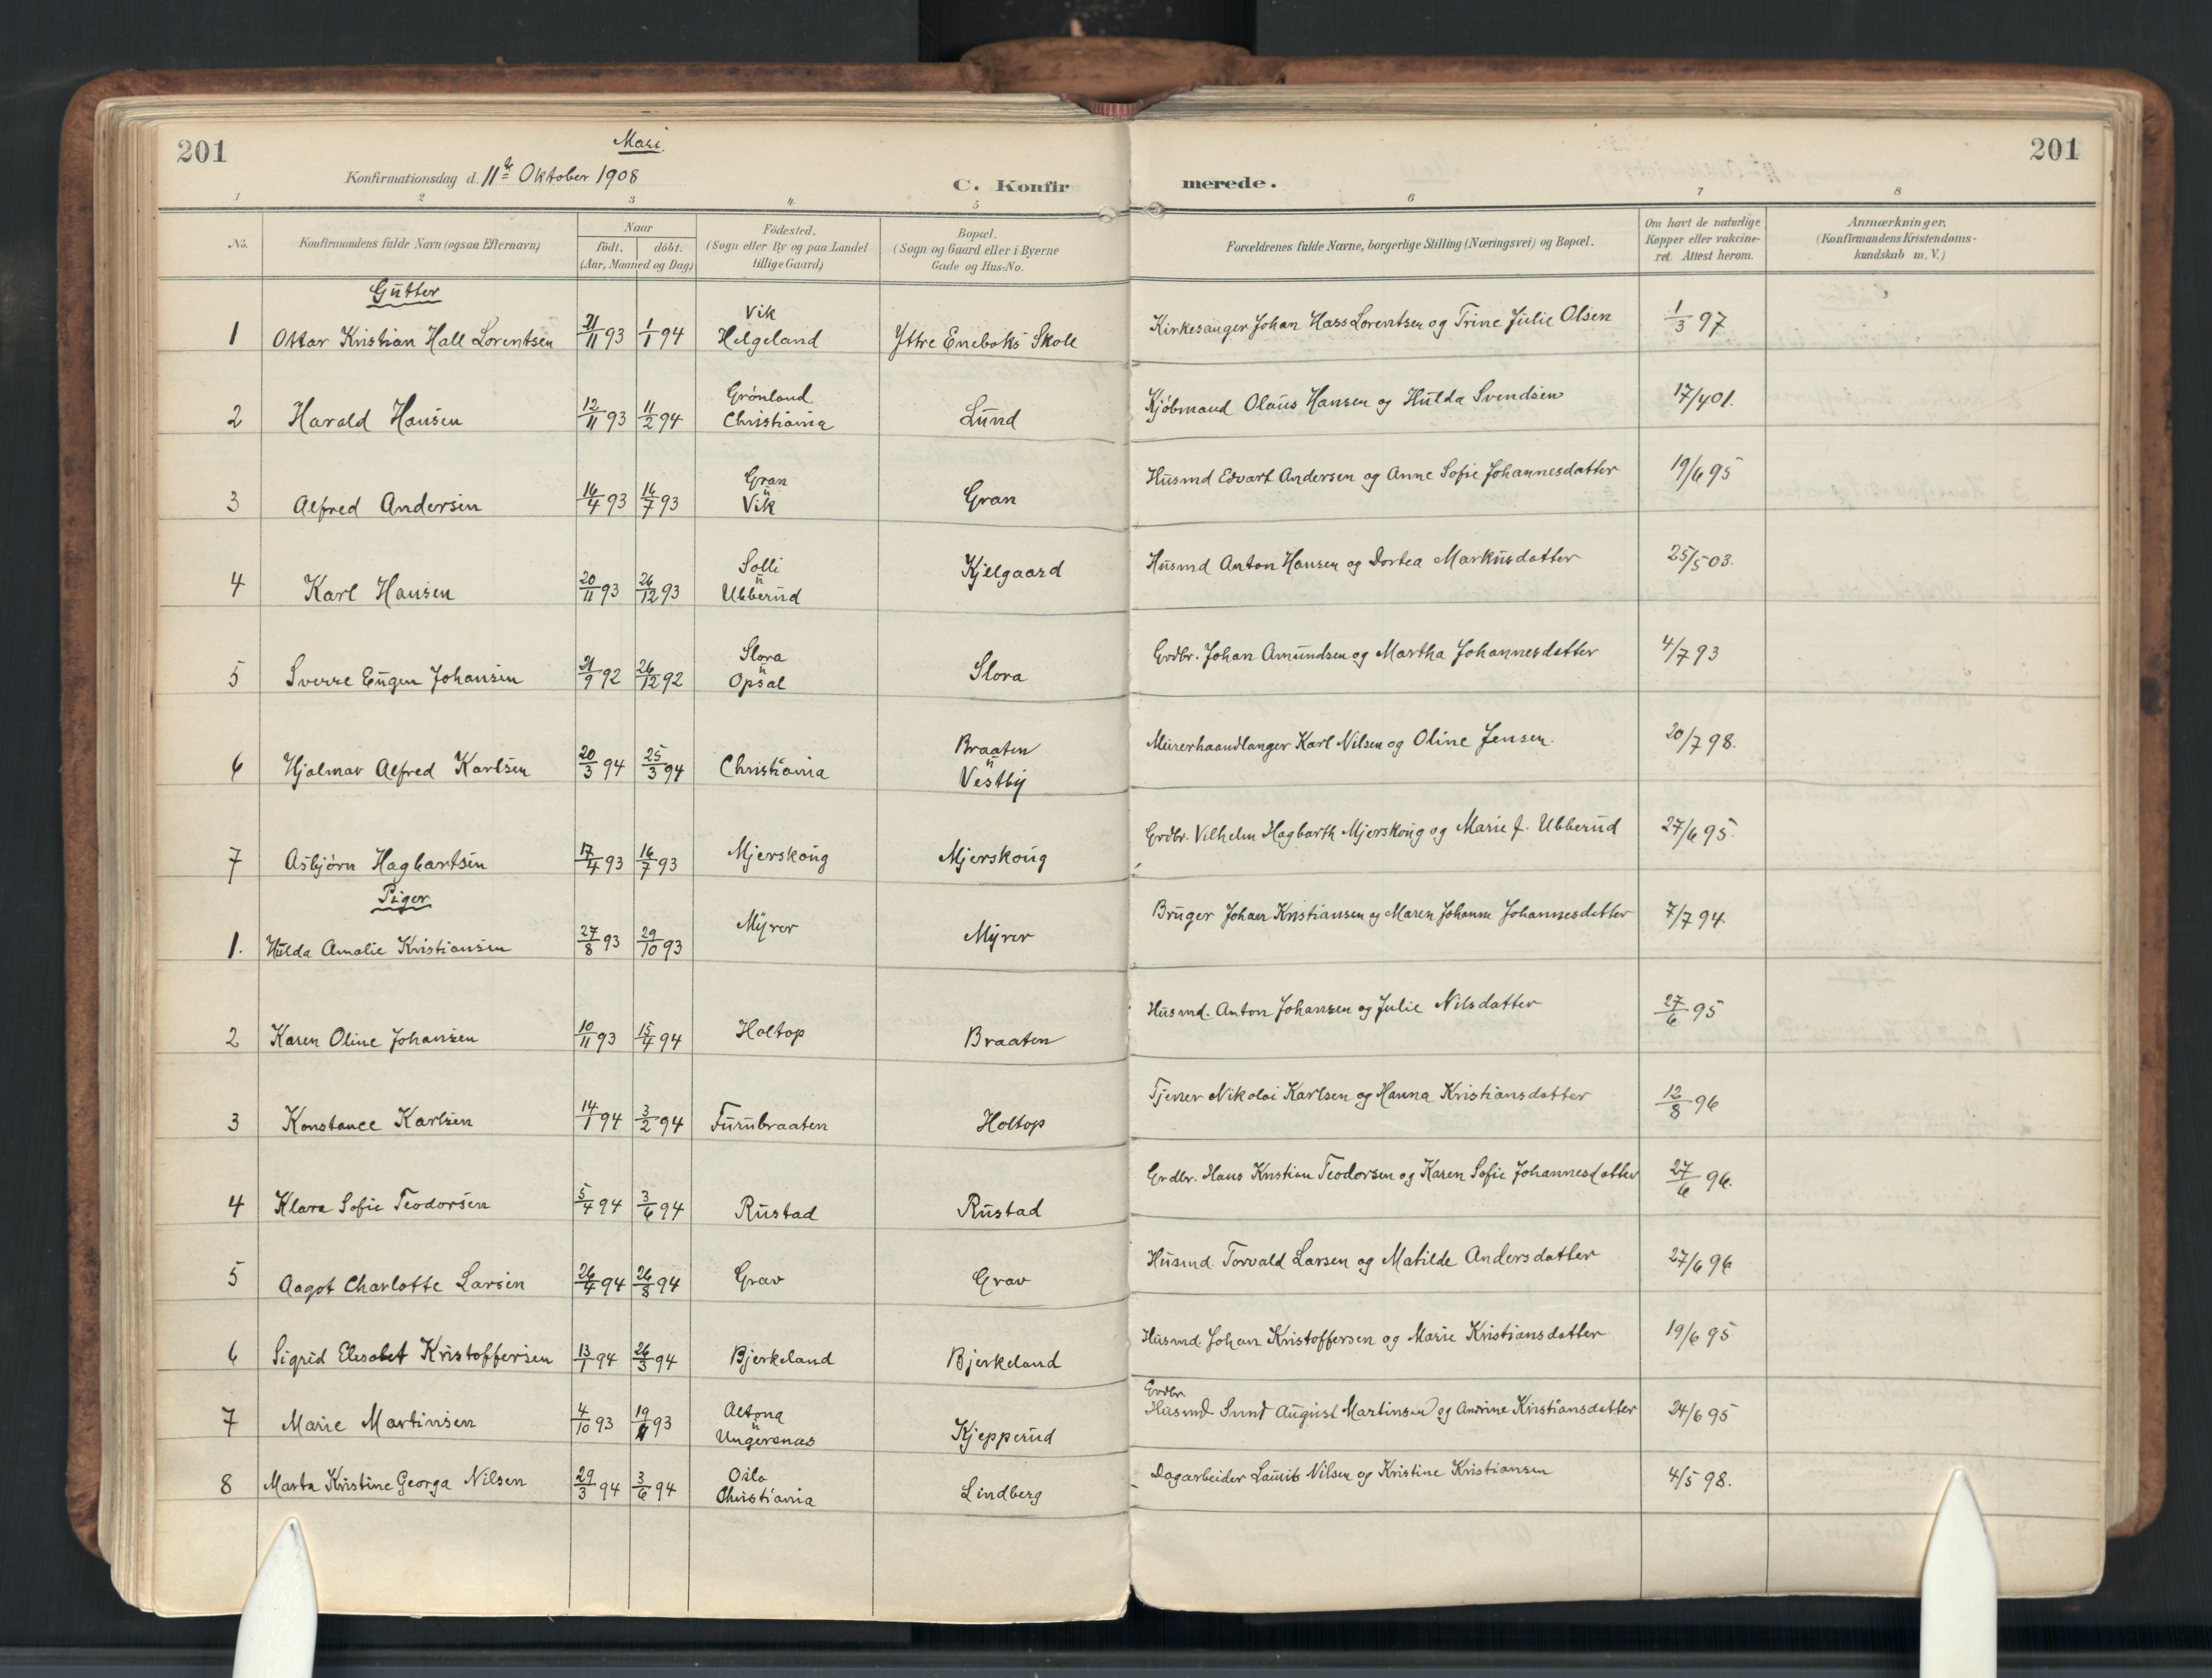 201
Mari.
Konfirmationsdag d. 11te Oktober 1908
C. Konfirmerede.
201
1 2 3 4 5 6 7 8
No.
Konfirmandens fulde Navn (ogsaa Efternavn)
Naar
født. døbt.
(Aar, Maaned og Dag)
Fødested.
(Sogn eller By og paa Landet
tillige Gaard)
Bopæl.
(Sogn og Gaard eller i Byerne
Gade og Hus-No.
Forældrenes fulde Navne, borgerlige Stilling (Næringsvei) og Bopæl.
Om havt de naturlige
Kopper eller vakcine-
ret. Attest herom.
Anmærkninger.
(Konfirmandens Kristendoms-
kundskab m. V.)
Gutter
1 Ottar Kristian Hall Lorentsen 21/11 93 1/1 94 Vik Helgeland Yttre Enebaks Skole Kirkesanger Johan Hass Lorentsen og Trine Julie Olsen 1/3 97
2 Harald Hansen 12/11 93 11/2 94 Grønland Christiania Lund Kjøbmand Olaus Hansen og Hulda Svendsen 17/4 01.
3 Alfred Andersen 16/4 93 16/7 93 Gran u Vik Gran Husmd Edvart Andersen og Anne Sofie Johannesdatter 19/6 95
4 Karl Hansen 20/11 93 26/12 93 Solli u Ubberud Kjelgaard Husmd Anton Hansen og Dortea Markusdatter 25/5 03.
5 Sverre Eugen Johansen 21/9 92 26/12 92 Slora u Opsal Slora Grdbr. Johan Amundsen og Martha Johannesdatter 4/7 93
6 Hjalmar Alfred Karlsen 20/3 94 25/3 94 Christiania Braaten u Vestby Murerhaandlanger Karl Nilsen og Oline Jensen. 20/7 98.
7 Asbjørn Hagbartsen 17/4 93 16/7 93 Mjerskoug Mjerskoug Grdbr. Vilhelm Hagbarth Mjerskoug og Marie J. Ubberud 27/6 95.
Piger
1. Hulda Amalie Kristiansen 27/8 93 29/10 93 Myrer Myrer Bruger Johan Kristiansen og Maren Johanne Johannesdatter 7/7 94
2 Karen Oline Johansen 10/11 93 15/4 94 Holtop Braaten Husmd. Anton Johansen og Julie Nilsdatter 27/6 95
3 Konstance Karlsen 14/1 94 3/2 94 Furubraaten Holtop Tjener Nikolai Karlsen og Hanna Kristiansdatter 12/8 96
4 Klara Sofie Teodorsen 5/4 94 3/6 94 Rustad Rustad Grdbr. Hans Kristian Teodorsen og Karen Sofie Johannesdatter 27/6 96.
5 Aagot Charlotte Larsen 26/4 94 26/8 94 Grav Grav Husmd. Torvald Larsen og Matilde Andersdatter 27/6 96
6 Sigrid Elesabet Kristoffersen 13/1 94 26/3 94 Bjerkeland Bjerkeland Husmd. Johan Kristoffersen og Marie Kristiansdatter 19/6 95
7 Marie Martinsen 4/10 93 19/11 93 Altona u Ungersnæs Kjepperud Grdbr. Husmd August Martinsen og Andrine Kristiansdatter 24/6 95
8 Marta Kristine Georga Nilsen 29/3 94 3/6 94 Oslo Christiania Lindberg Dagarbeider Laurits Nilsen og Kristine Kristiansen 4/5 98.